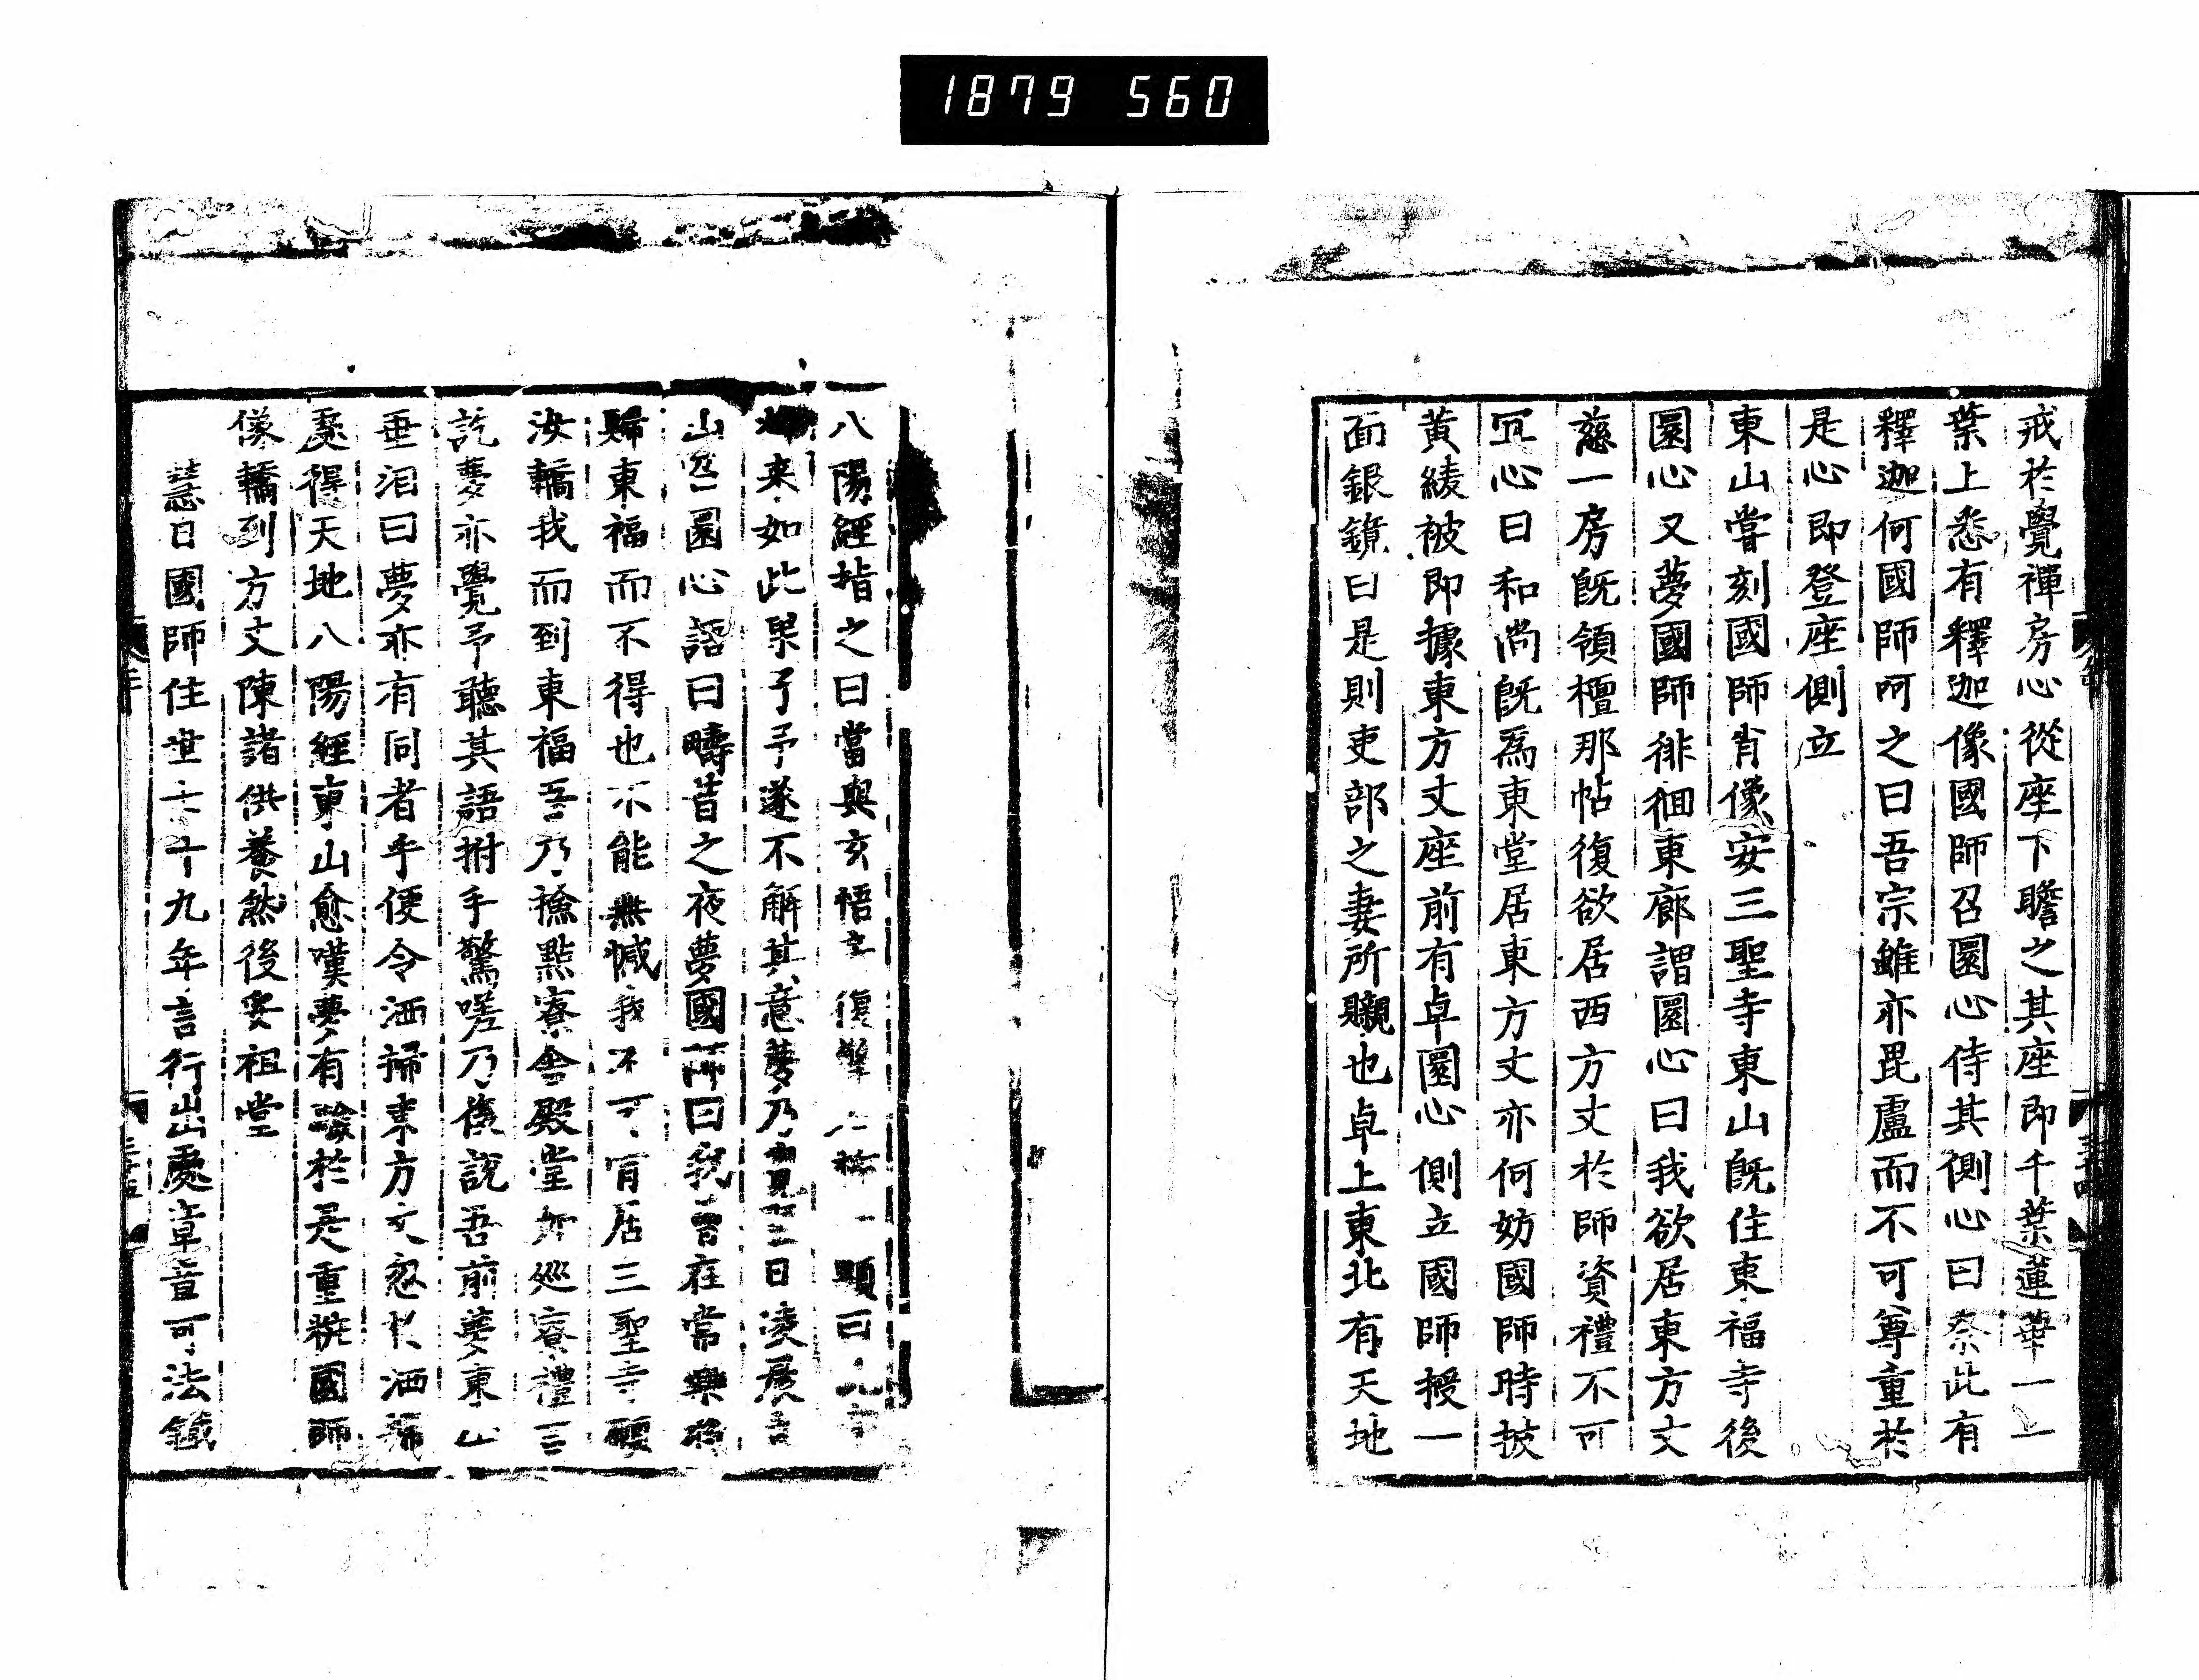 1879 560
戒於覺禪房心從座下瞻之其座即千葉蓮華一一
葉上悉有釋迦像國師召圜心侍其側心曰奈此有
釋迦何國師呵之曰吾宗雖亦毘盧而不可尊重於
是心即登座側立
東山嘗刻國師肖像安三聖寺東山既住東福寺後
圜心又夢國師徘徊東廊謂圜心曰我欲居東方丈
慈一房既領檀那帖復欲居西方丈於師資禮不可
冝心曰和尚既爲東堂居東方丈亦何妨國師時披
黃綾被即據東方丈座前有卓圜心側立國師授一
面銀鏡曰是則吏部之妻所贈也卓上東北有天地
八陽經指之曰當與玄悟
来如此果予予遂不解其意夢乃
山圜心語曰疇昔之夜夢國師曰我在常樂
歸東福而不得也不能無憾我不可居三聖寺
汝轎我而到東福吾乃撿點寮舍殿堂如巡寮禮三
訖夢亦覺予聽其語拊手驚嗟乃俻說吾前夢東山
垂泪曰夢亦有同者乎便令洒掃東方丈忽於洒掃
處得天地八陽經東山愈嘆夢有驗於是重粧國師
像轎到方丈陳諸供養然後安祖堂
慧日國師住世七十九年言行出處章章可法鐵